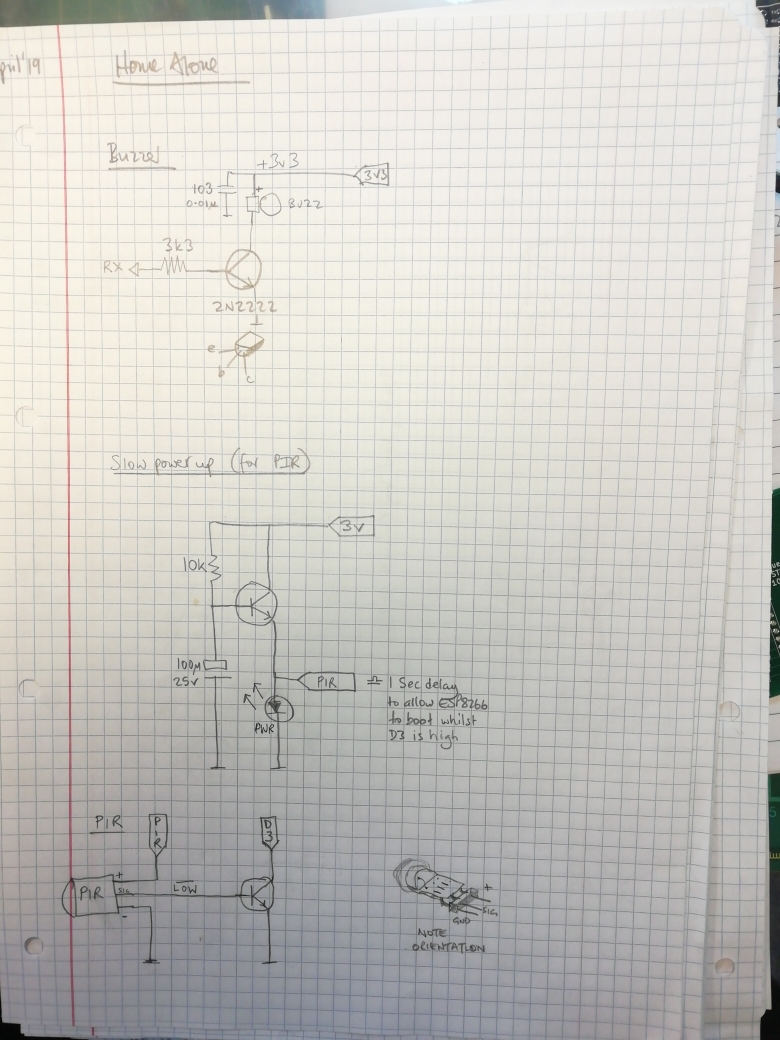 pril '19
Home Alone
Buzzer
+3v3
3V3
103
0.01µ
+
BUZZ
3k3
RX
2N2222
e
b
c
Slow power up (for PIR)
3V
10k
100µ
25V
PIR
≏ 1 Sec delay
to allow ESP8266
to boot whilst
D3 is high
PWR
PIR
PIR
D3
+
PIR
SIG
LOW
-
+
SIG
GND
NOTE
ORIENTATION